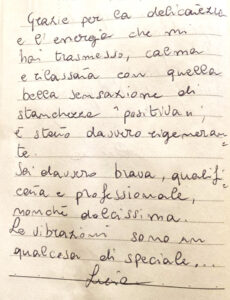 Grazie per la delicatezza
e l'energia che mi
hai trasmesso, calma
e rilassata con quella
bella sensazione di
stanchezza "positiva";
È stato davvero rigeneran=
te.
Sei davvero brava, qualifi=
cata e professionale,
nonché dolcissima.
Le vibrazioni sono un
qualcosa di speciale...
Lucia